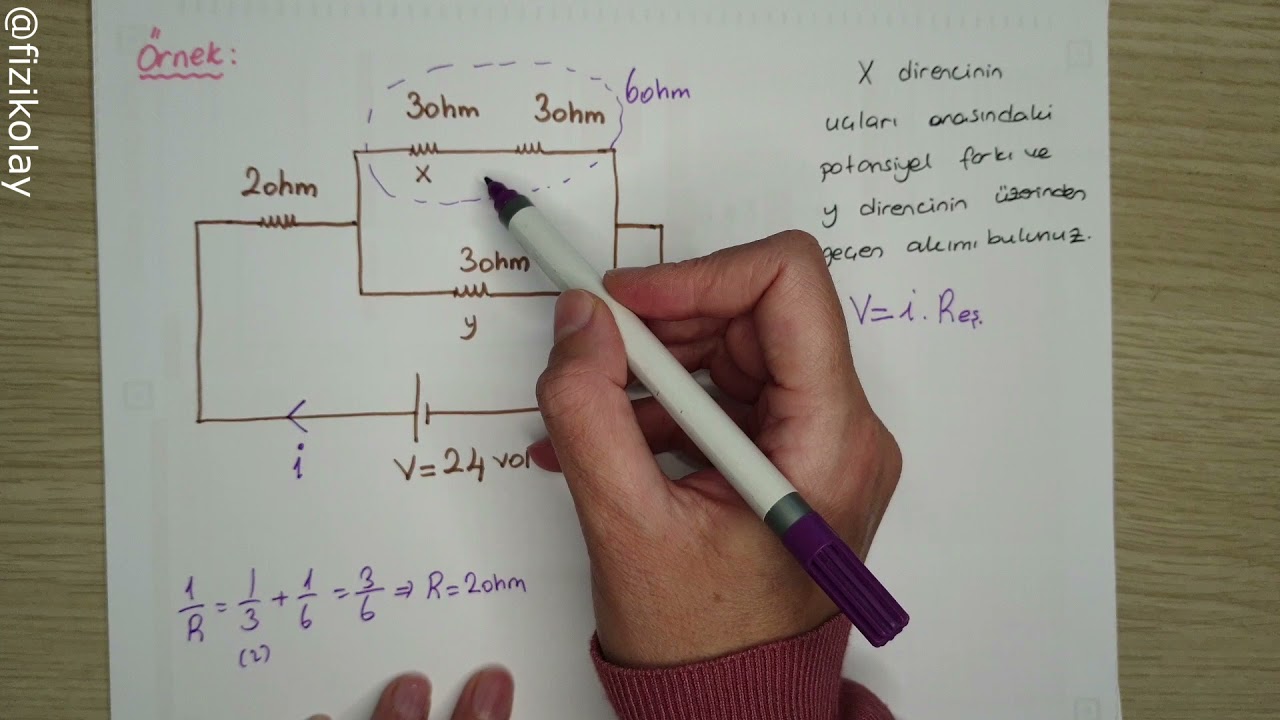 @fizikolay
Örnek:
6ohm
3ohm 3ohm
X
2ohm
3ohm
y
i
V=24 vol
X direncinin
uçları arasındaki
potansiyel farkı ve
y direncinin üzerinden
geçen akımı bulunuz.
V=i.Reş.
1/R = 1/3 + 1/6 = 3/6 ⇒ R=2ohm
(2)